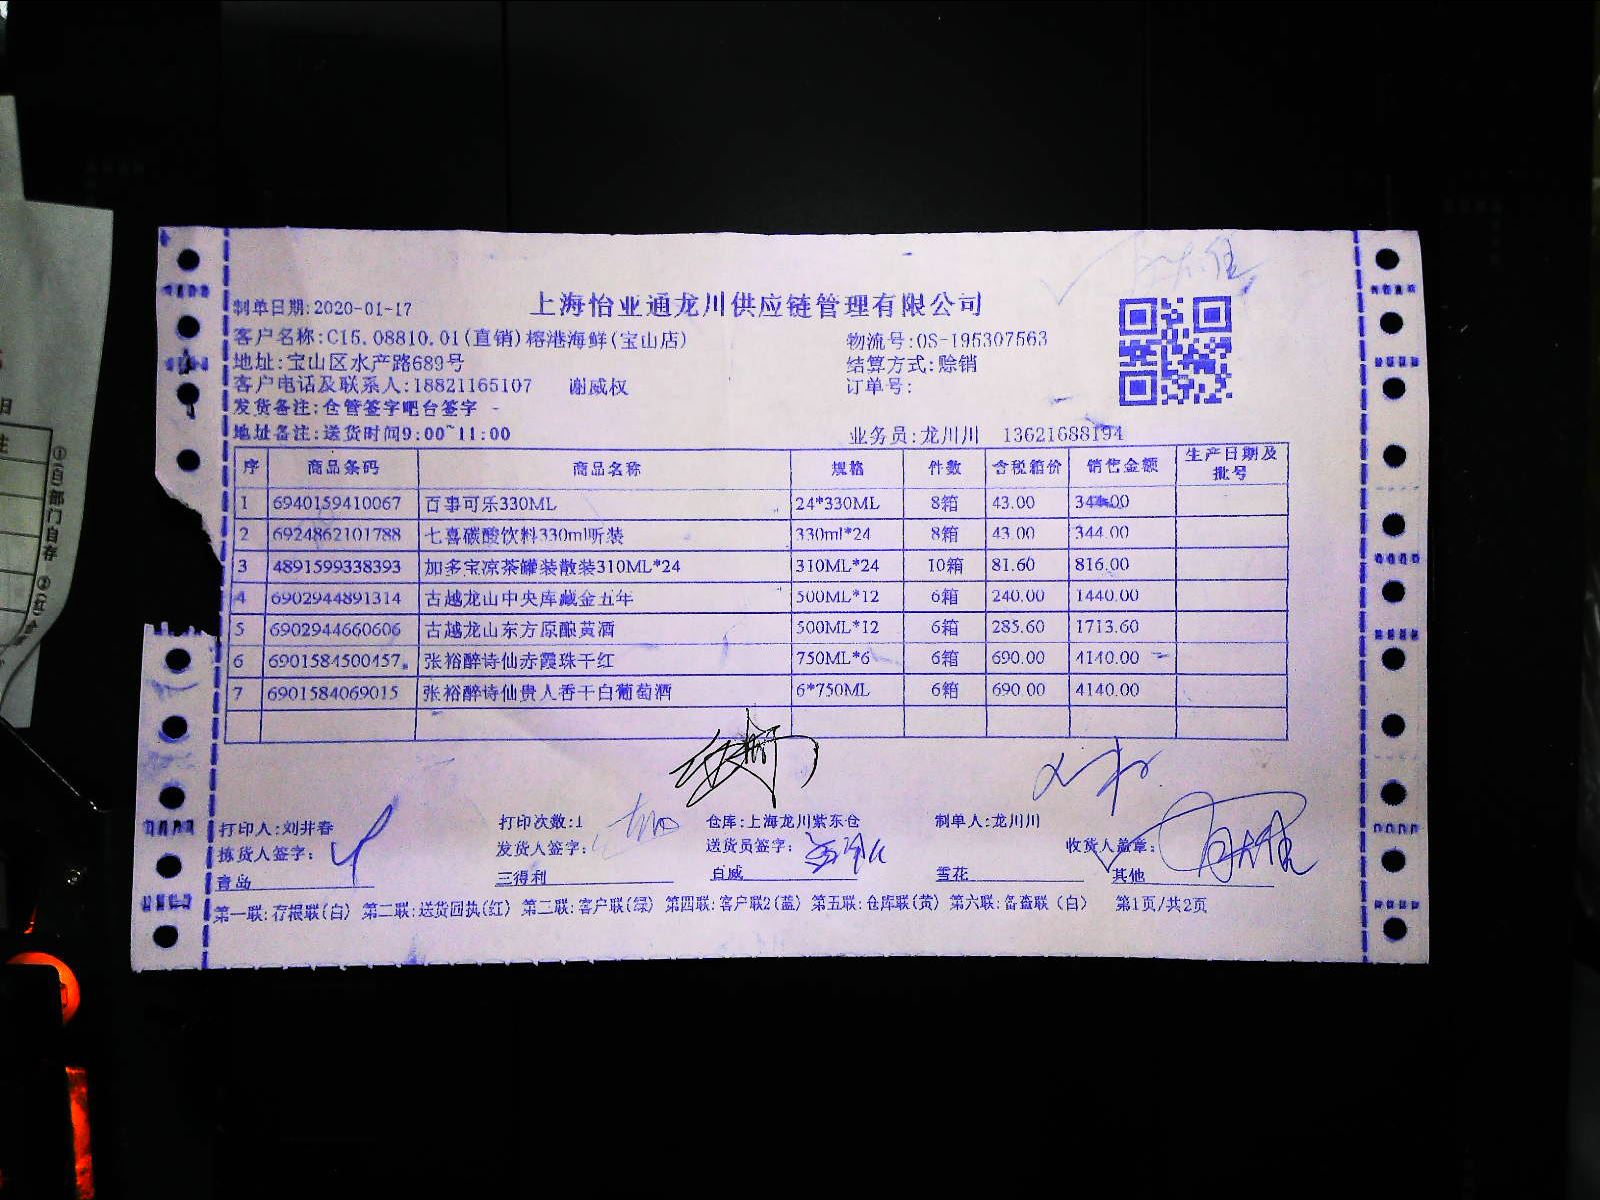 上海怡亚通龙川供应链管理有限公司
制单日期:2020-01-17
客户名称:C15.08810.01(直销)榕港海鲜(宝山店) 物流号:OS-195307563
地址:宝山区水产路689号 结算方式:赊销
客户电话及联系人:18821165107 谢威权 订单号:
发货备注:仓管签字吧台签字
地址备注:送货时间9:00~11:00 业务员:龙川川 13621688194
序 商品条码 商品名称 规格 件数 含税箱价 销售金额 生产日期及批号
1 6940159410067 百事可乐330ML 24*330ML 8箱 43.00 344.00
2 6924862101788 七喜碳酸饮料330ml听装 330ml*24 8箱 43.00 344.00
3 4891599338393 加多宝凉茶罐装散装310ML*24 310ML*24 10箱 81.60 816.00
4 6902944891314 古越龙山中央库藏金五年 500ML*12 6箱 240.00 1440.00
5 6902944660606 古越龙山东方原酿黄酒 500ML*12 6箱 285.60 1713.60
6 6901584500457 张裕醉诗仙赤霞珠干红 750ML*6 6箱 690.00 4140.00
7 6901584069015 张裕醉诗仙贵人香干白葡萄酒 6*750ML 6箱 690.00 4140.00
打印人:刘井春 打印次数:1 仓库:上海龙川紫东仓 制单人:龙川川
拣货人签字: 发货人签字: 送货员签字: 收货人盖章:
青岛 三得利 百威 雪花 其他
第一联:存根联(白) 第二联:送货回执(红) 第三联:客户联(绿) 第四联:客户联2(蓝) 第五联:仓库联(黄) 第六联:备查联(白) 第1页/共2页
①(白)部门自存
②(红)